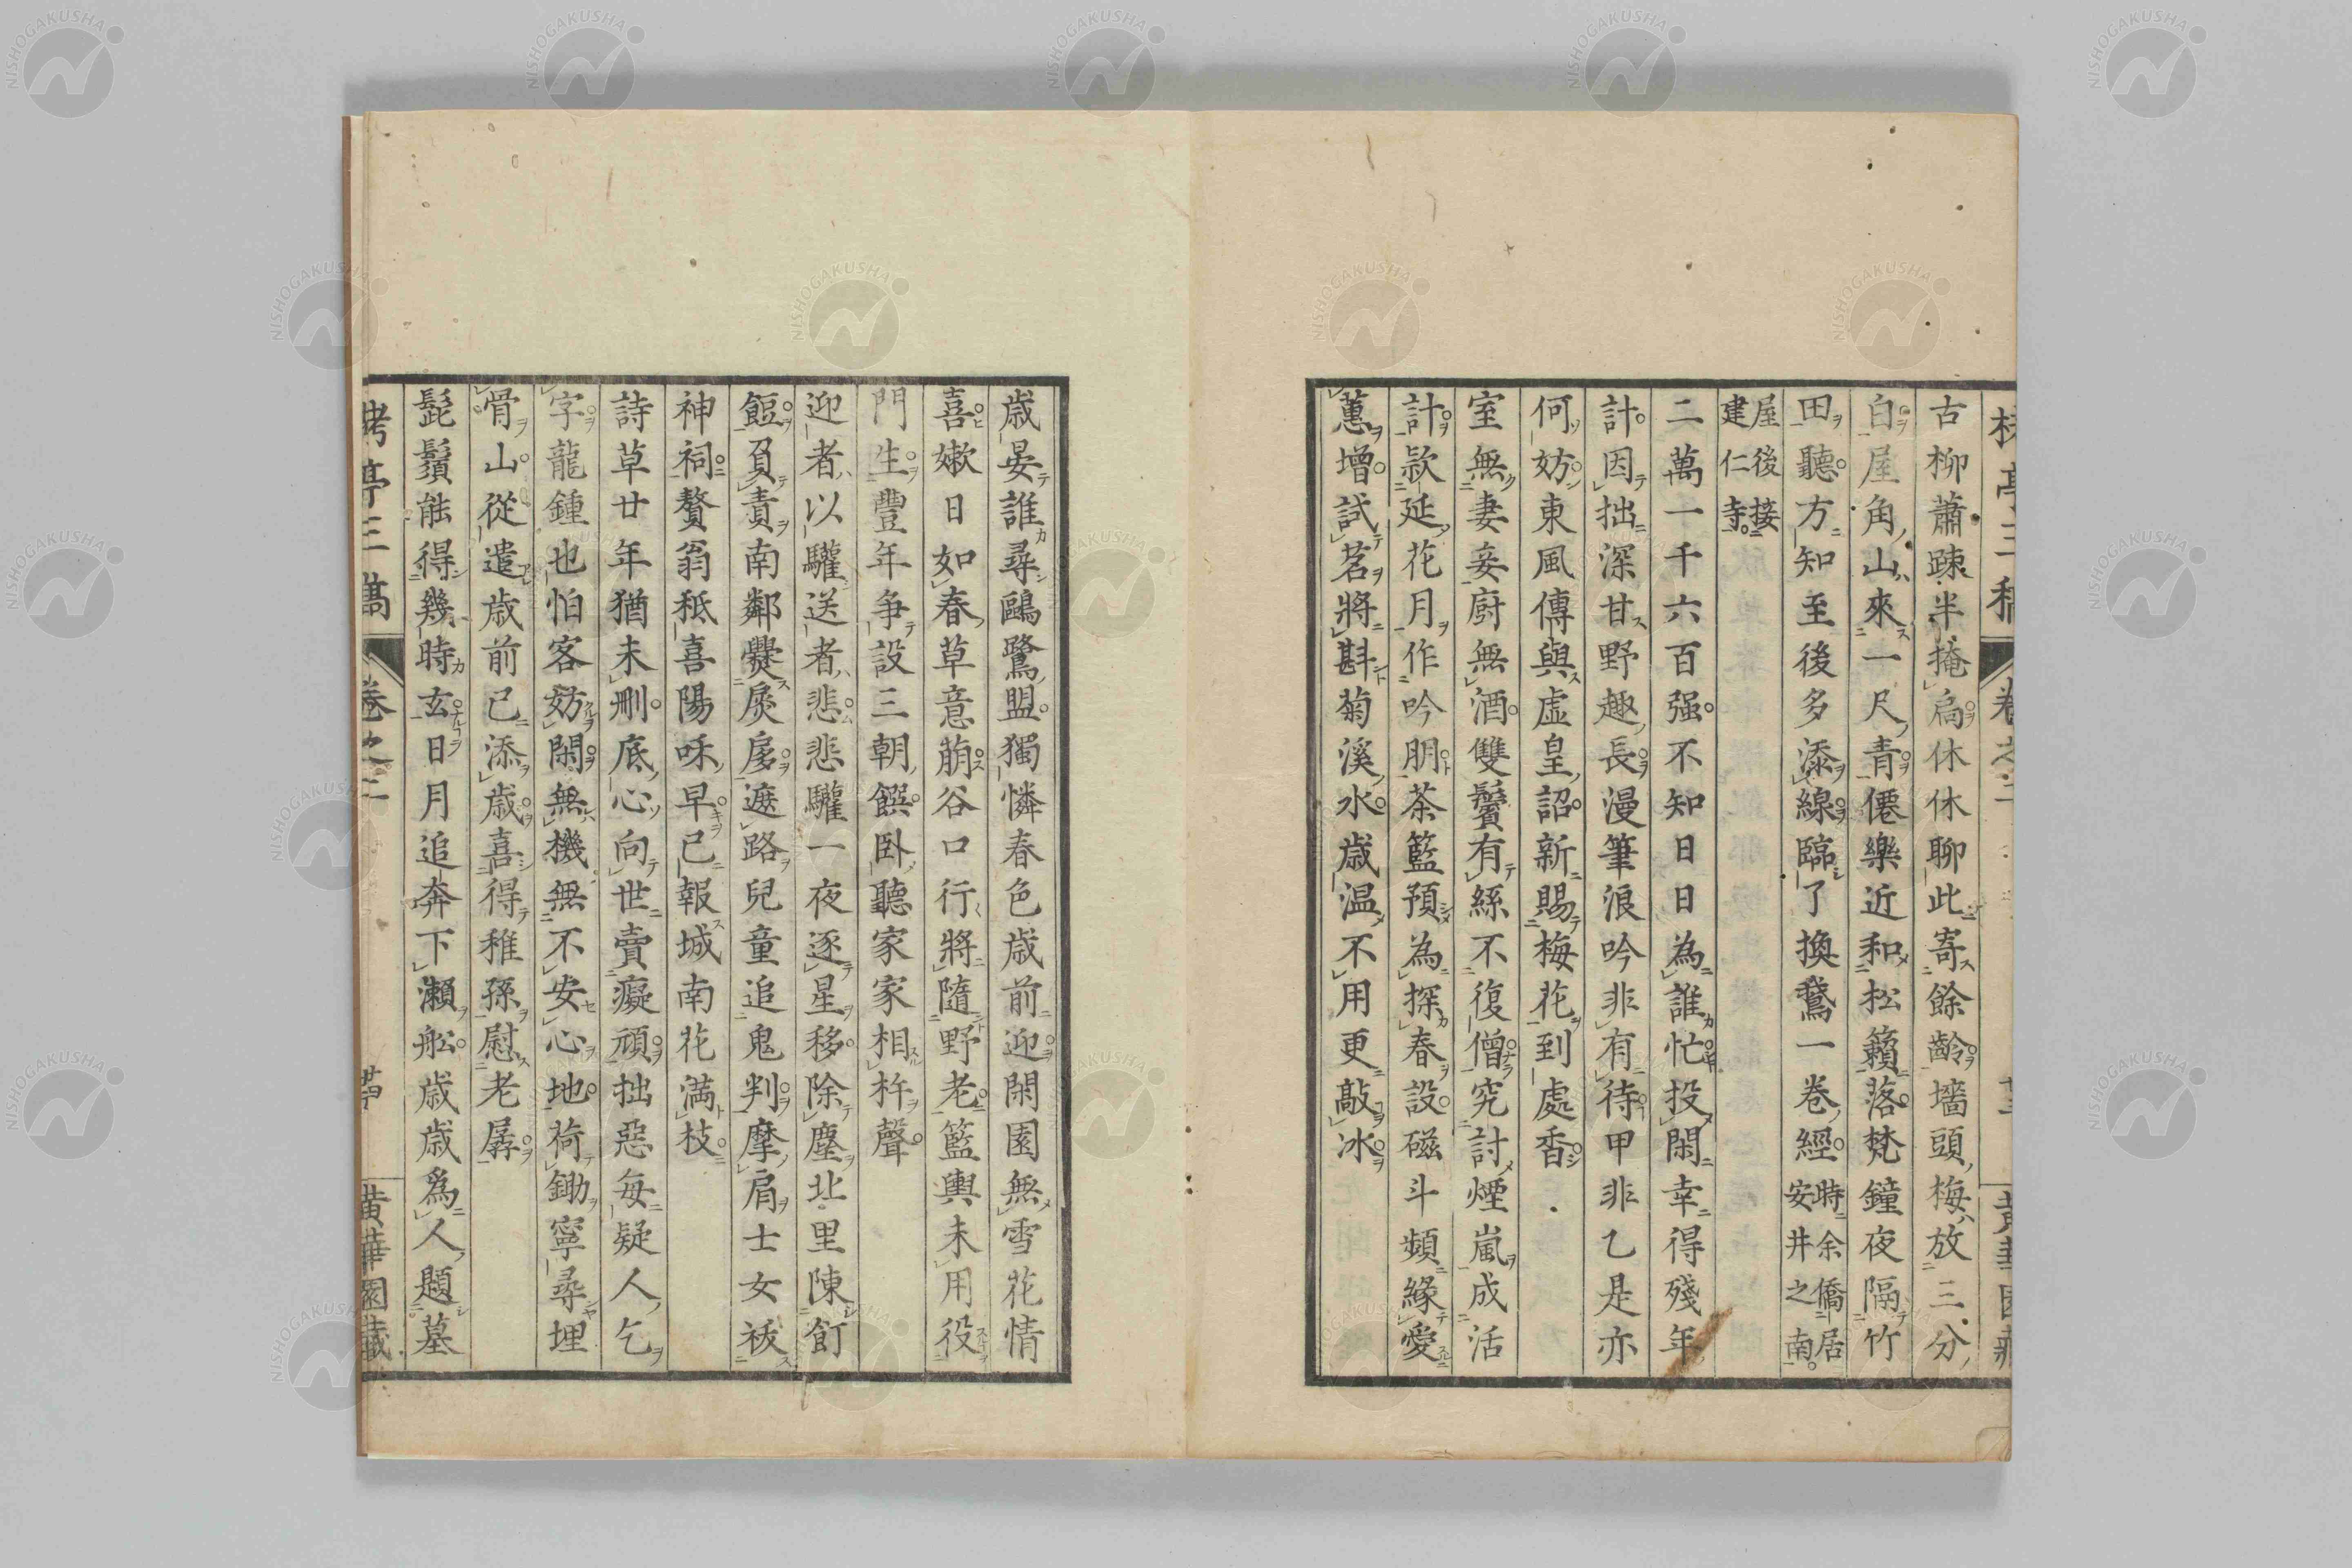 古柳蕭疎半掩扄休休聊此寄餘齡墻頭梅放三分
白屋角山來一尺青僊樂近和松籟落梵鐘夜隔竹
田聽方知至後多添線臨了換鵞一卷經時余僑居安井之南
屋後接建仁寺
二萬一千六百强不知日日為誰忙投閑幸得殘年
計因拙深甘野趣長漫筆浪吟非有待甲非乙是亦
何妨東風傳與虛皇詔新賜梅花到處香
室無妻妾廚無酒雙鬢有絲不復僧究討煙嵐成活
計欵延花月作吟朋茶籃預為探春設磁斗頻緣愛
蕙增試茗將斟菊溪水歲温不用更敲冰
歲晏誰尋鷗鷺盟獨憐春色歲前迎閑園無雪花情
喜嫩日如春草意萠谷口行將隨野老籃輿未用役
門生豐年争設三朝饌卧聽家家相杵聲
迎者以驩送者悲悲驩一夜逐星移除塵北里陳飣
餖負責南鄰爨扊扅遮路兒童追鬼判摩肩士女祓
神祠贅翁秪喜陽呠早已報城南花滿枝
詩草廿年猶未刪底心向世賣癡頑拙惡每疑人乞
字龍鍾也怕客妨閑無機無不安心地荷鋤寧尋埋
骨山從遣歲前已添歲喜得稚孫慰老孱
髭鬚能得幾時玄日月追奔下瀨舩歲歲為人題墓
亭三 卷之二 黄華園藏